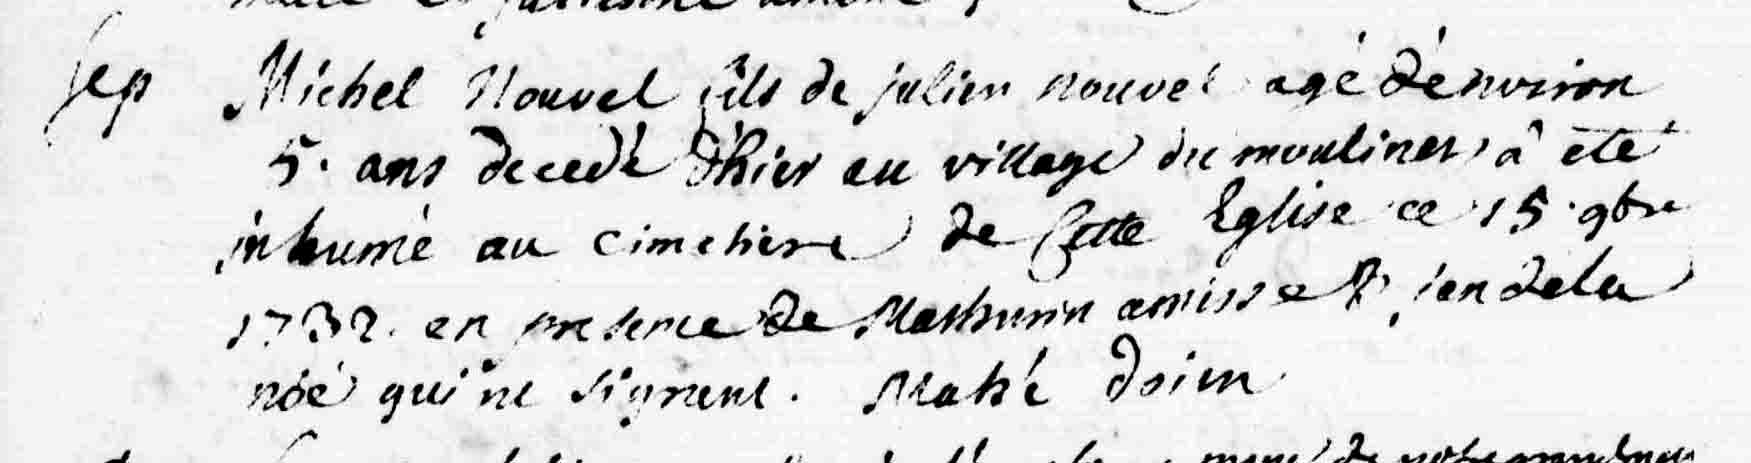 Sep Michel Nouvel fils de julien nouvel agé d'énviron
5. ans decedé d'hier au village du moulinet à été
inhumé au cimetiere de Cette Eglise ce 15. 9bre
1732. en presence de Mathurin amisse & jan de la
nöé qui ne signent. Mahé doien